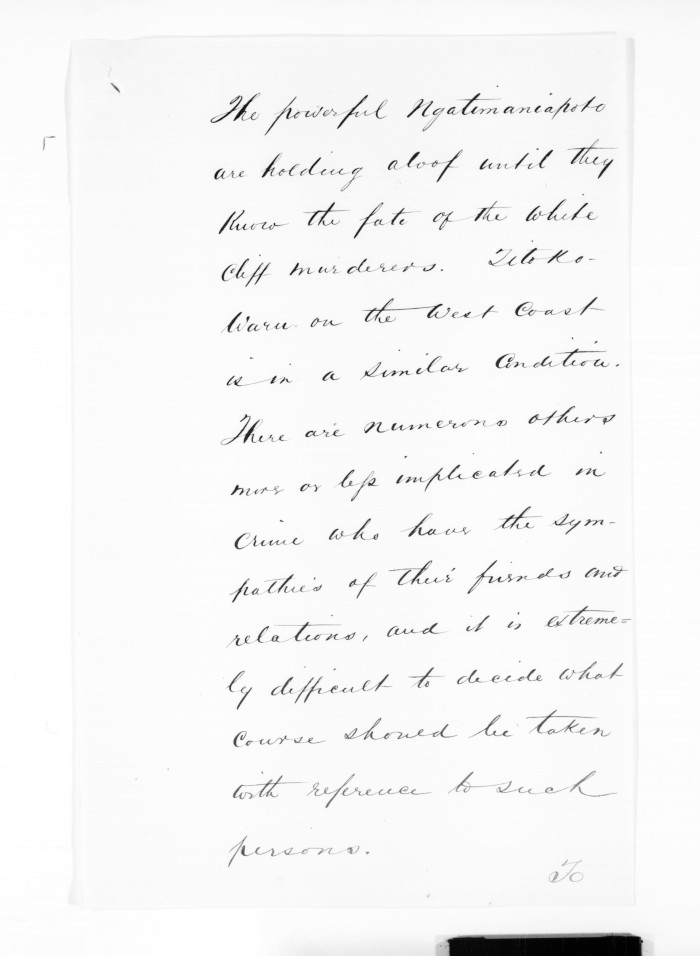 The powerful Ngatimaniapoto
are holding aloof until they
Know the fate of the White
Cliff murderers. Titoko-
Waru on the West Coast
is in a similar Condition.
There are numerous others
more or less implicated in
Crime who have the sym-
pathies of their friends and
relations, and it is extreme=
ly difficult to decide what
course should be taken
with reference to such
persons.
To